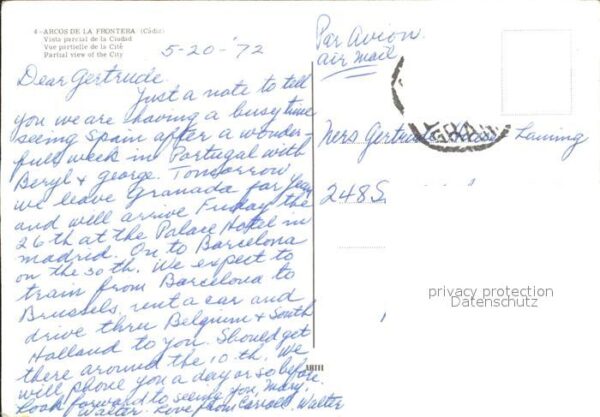 4 - ARCOS DE LA FRONTERA (Cádiz)
Vista parcial de la Ciudad
Vue partielle de la Cité
Partial view of the City
5-20-'72
Dear Gertrude
Just a note to tell
you we are having a busy time
seeing Spain after a wonder-
full week in Portugal with
Beryl & george. Tomorrow
we leave Granada for
and will arrive Friday the
26th at the Palace Hotel in
madrid. On to Barcelona
on the 30th. We expect to
train from Barcelona to
Brussels, rent a car and
drive thru Belgium & South
Holland to you. Should get
there around the 10th. We
will phone you a day or so before.
Look forward to seeing you, Mary,
Walter. Love from Carroll, Walter
Par Avion
air mail
Gertrude Laming
248
privacy protection
Datenschutz